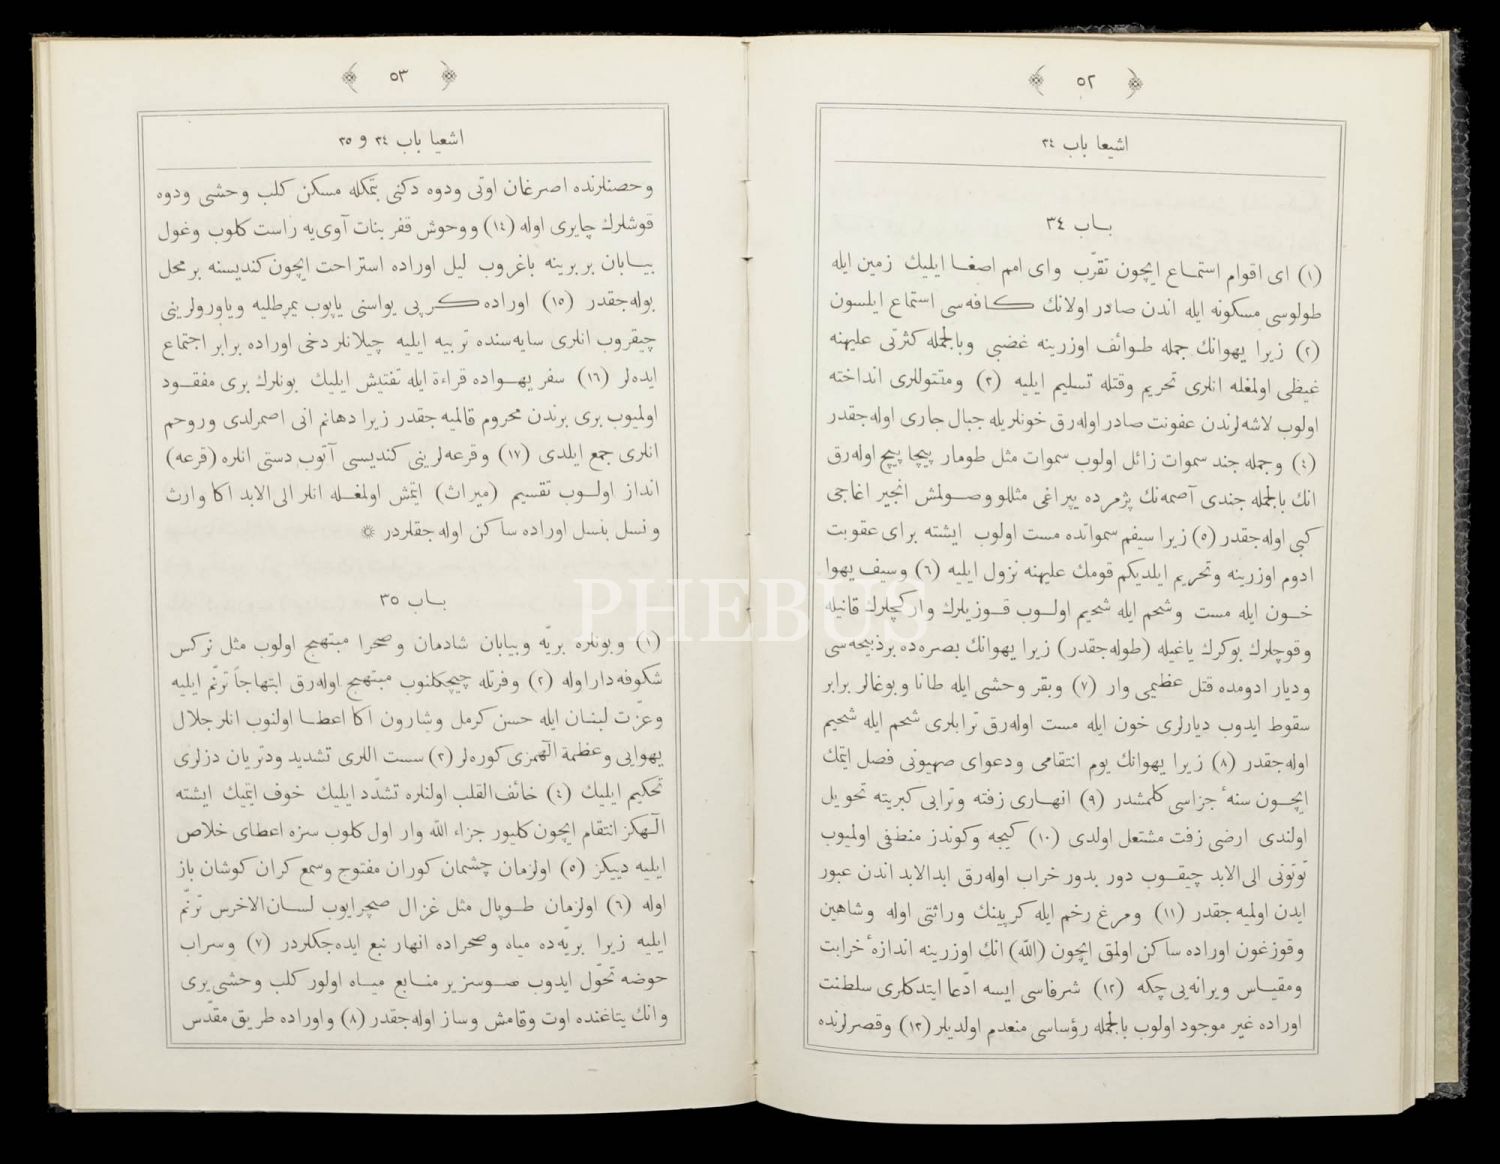 ٥٢
اشیعا باب ٣٤
بـاب ٣٤
(١) ای اقوام استمـاع ایچون تقرّب وای امم اصغـا ایلیك زمین ایله
طولوسی مسكونه ایله اندن صادر اولانك كافه‌سی استماع ایلسون
(٢) زیرا یهوانك جمله طـوائف اوزرینه غضبی وبالجمله كثرتی علیهنه
غیظی اولمغله انلری تحریم وقتله تسلیم ایلیه (٣) ومقتوللری انداخته
اولوب لاشه‌لرندن عفونت صادر اوله‌رق خونلریله جبال جاری اوله‌جقدر
(٤) وجمله جند سموات زائل اولوب سموات مثل طومار پیچا پیچ اوله‌رق
انك بالجمله جندی آصمه‌نك پژمرده یپراغی مثللو وصـولمش انجیر اغاجی
كبی اوله‌جقدر (٥) زیرا سیفم سمواتده مست اولوب ایشته برای عقوبت
ادوم اوزرینه وتحریم ایلدیكم قومك علیهنه نزول ایلیه (٦) وسیف یهوا
خـون ایله مست وشحم ایله شحیم اولـوب قـوزیلرك واركچلرك قانیله
وقوچلرك بوكرك یاغیله (طوله‌جقدر) زیرا یهوانك بصره‌ده بر ذبیحه‌سی
ودیار ادومده قتل عظیمی وار (٧) وبقر وحشی ایله طانا وبوغالر برابر
سقوط ایدوب دیارلری خون ایله مست اوله‌رق ترابلری شحم ایله شحیم
اوله‌جقدر (٨) زیرا یهوانك یوم انتقامی ودعوای صهیونی فصل ایتمك
ایچـون سنهٔ جزاسی كلمشدر (٩) انهـاری زفته وترابی كبریته تحویل
اولندی ارضی زفت مشتعل اولدی (١٠) كیجه وكوندز منطفی اولمیوب
توتونی الی الابد چیقـوب دور بدور خراب اوله‌رق ابدالابد اندن عبور
ایدن اولمیه جقدر (١١) ومرغ رخم ایله كرپینك وراثتی اوله وشاهین
وقوزغون اوراده ساكن اولمق ایچون (الله) انك اوزرینه اندازهٔ خرابت
ومقیـاس ویرانه‌یی چكه (١٢) شرفاسی ایسه ادّعا ایتدكلری سلطنت
اوراده غیر موجود اولوب بالجمله رؤساسی منعدم اولدیلر (١٣) وقصرلرنده
٥٣
اشعیا باب ٣٤ و ٣٥
وحصنلرنده اصرغان اوتی ودوه دكنی بتمكله مسكن كلب وحشی ودوه
قوشلرك چایری اوله (١٤) ووحوش قفر بنات آوی‌یه راست كلوب وغول
بیـابان بربرینه باغروب لیل اوراده استراحت ایچون كندیسنه بر محل
بوله‌جقدر (١٥) اوراده كرپی یواسنی یاپوب یمرطلیه ویاورولرینی
چیقروب انلری سایه‌سنده تربیه ایلیه چیلانلر دخی اوراده برابر اجتماع
ایده‌لر (١٦) سفر یهـواده قراءة ایله تفتیش ایلیك بونلرك بری مفقـود
اولمیوب بری برندن محروم قالمیه جقدر زیرا دهانم انی اصمرلدی وروحم
انلری جمع ایلدی (١٧) وقرعه‌لرینی كندیسی آتوب دستی انلره (قرعه)
انداز اولـوب تقسیم (میراث) ایتمش اولمغـله انلر الی الابد اكا وارث
ونسل بنسل اوراده ساكن اوله جقلردر
بـاب ٣٥
(١) وبونلره بریّه وبیابان شادمان وصحرا مبتهج اولوب مثل نركس
شكوفه‌دار اوله (٢) وفرتله چیچكلنوب مبتهج اوله‌رق ابتهاجاً ترنّم ایلیه
وعزّت لبنـان ایله حسن كرمل وشارون اكا اعطـا اولنوب انلر جلال
یهوایی وعظمة الٓهمزی كوره‌لر (٣) سست اللری تشدید ودتریان دزلری
تحكیم ایلیك (٤) خائف القلب اولنلره تشدّد ایلیك خوف ایتمیك ایشته
الٓهكز انتقام ایچون كلیور جزاء الله وار اول كلوب سزه اعطای خلاص
ایلیه دییكز (٥) اولزمان چشمان كوران مفتوح وسمع كران كوشان باز
اوله (٦) اولزمان طـوپال مثل غزال صچرایوب لسـان الاخرس ترنّم
ایلیه زیرا بریّه‌ده میاه وصحراده انهار نبع ایده‌جكلردر (٧) وسراب
حوضه تحوّل ایدوب صـوسز یر منـابع میـاه اولور كلب وحشی یری
وانك یتاغنده اوت وقامش وساز اوله‌جقدر (٨) واوراده طریق مقدّس
PHEBUS